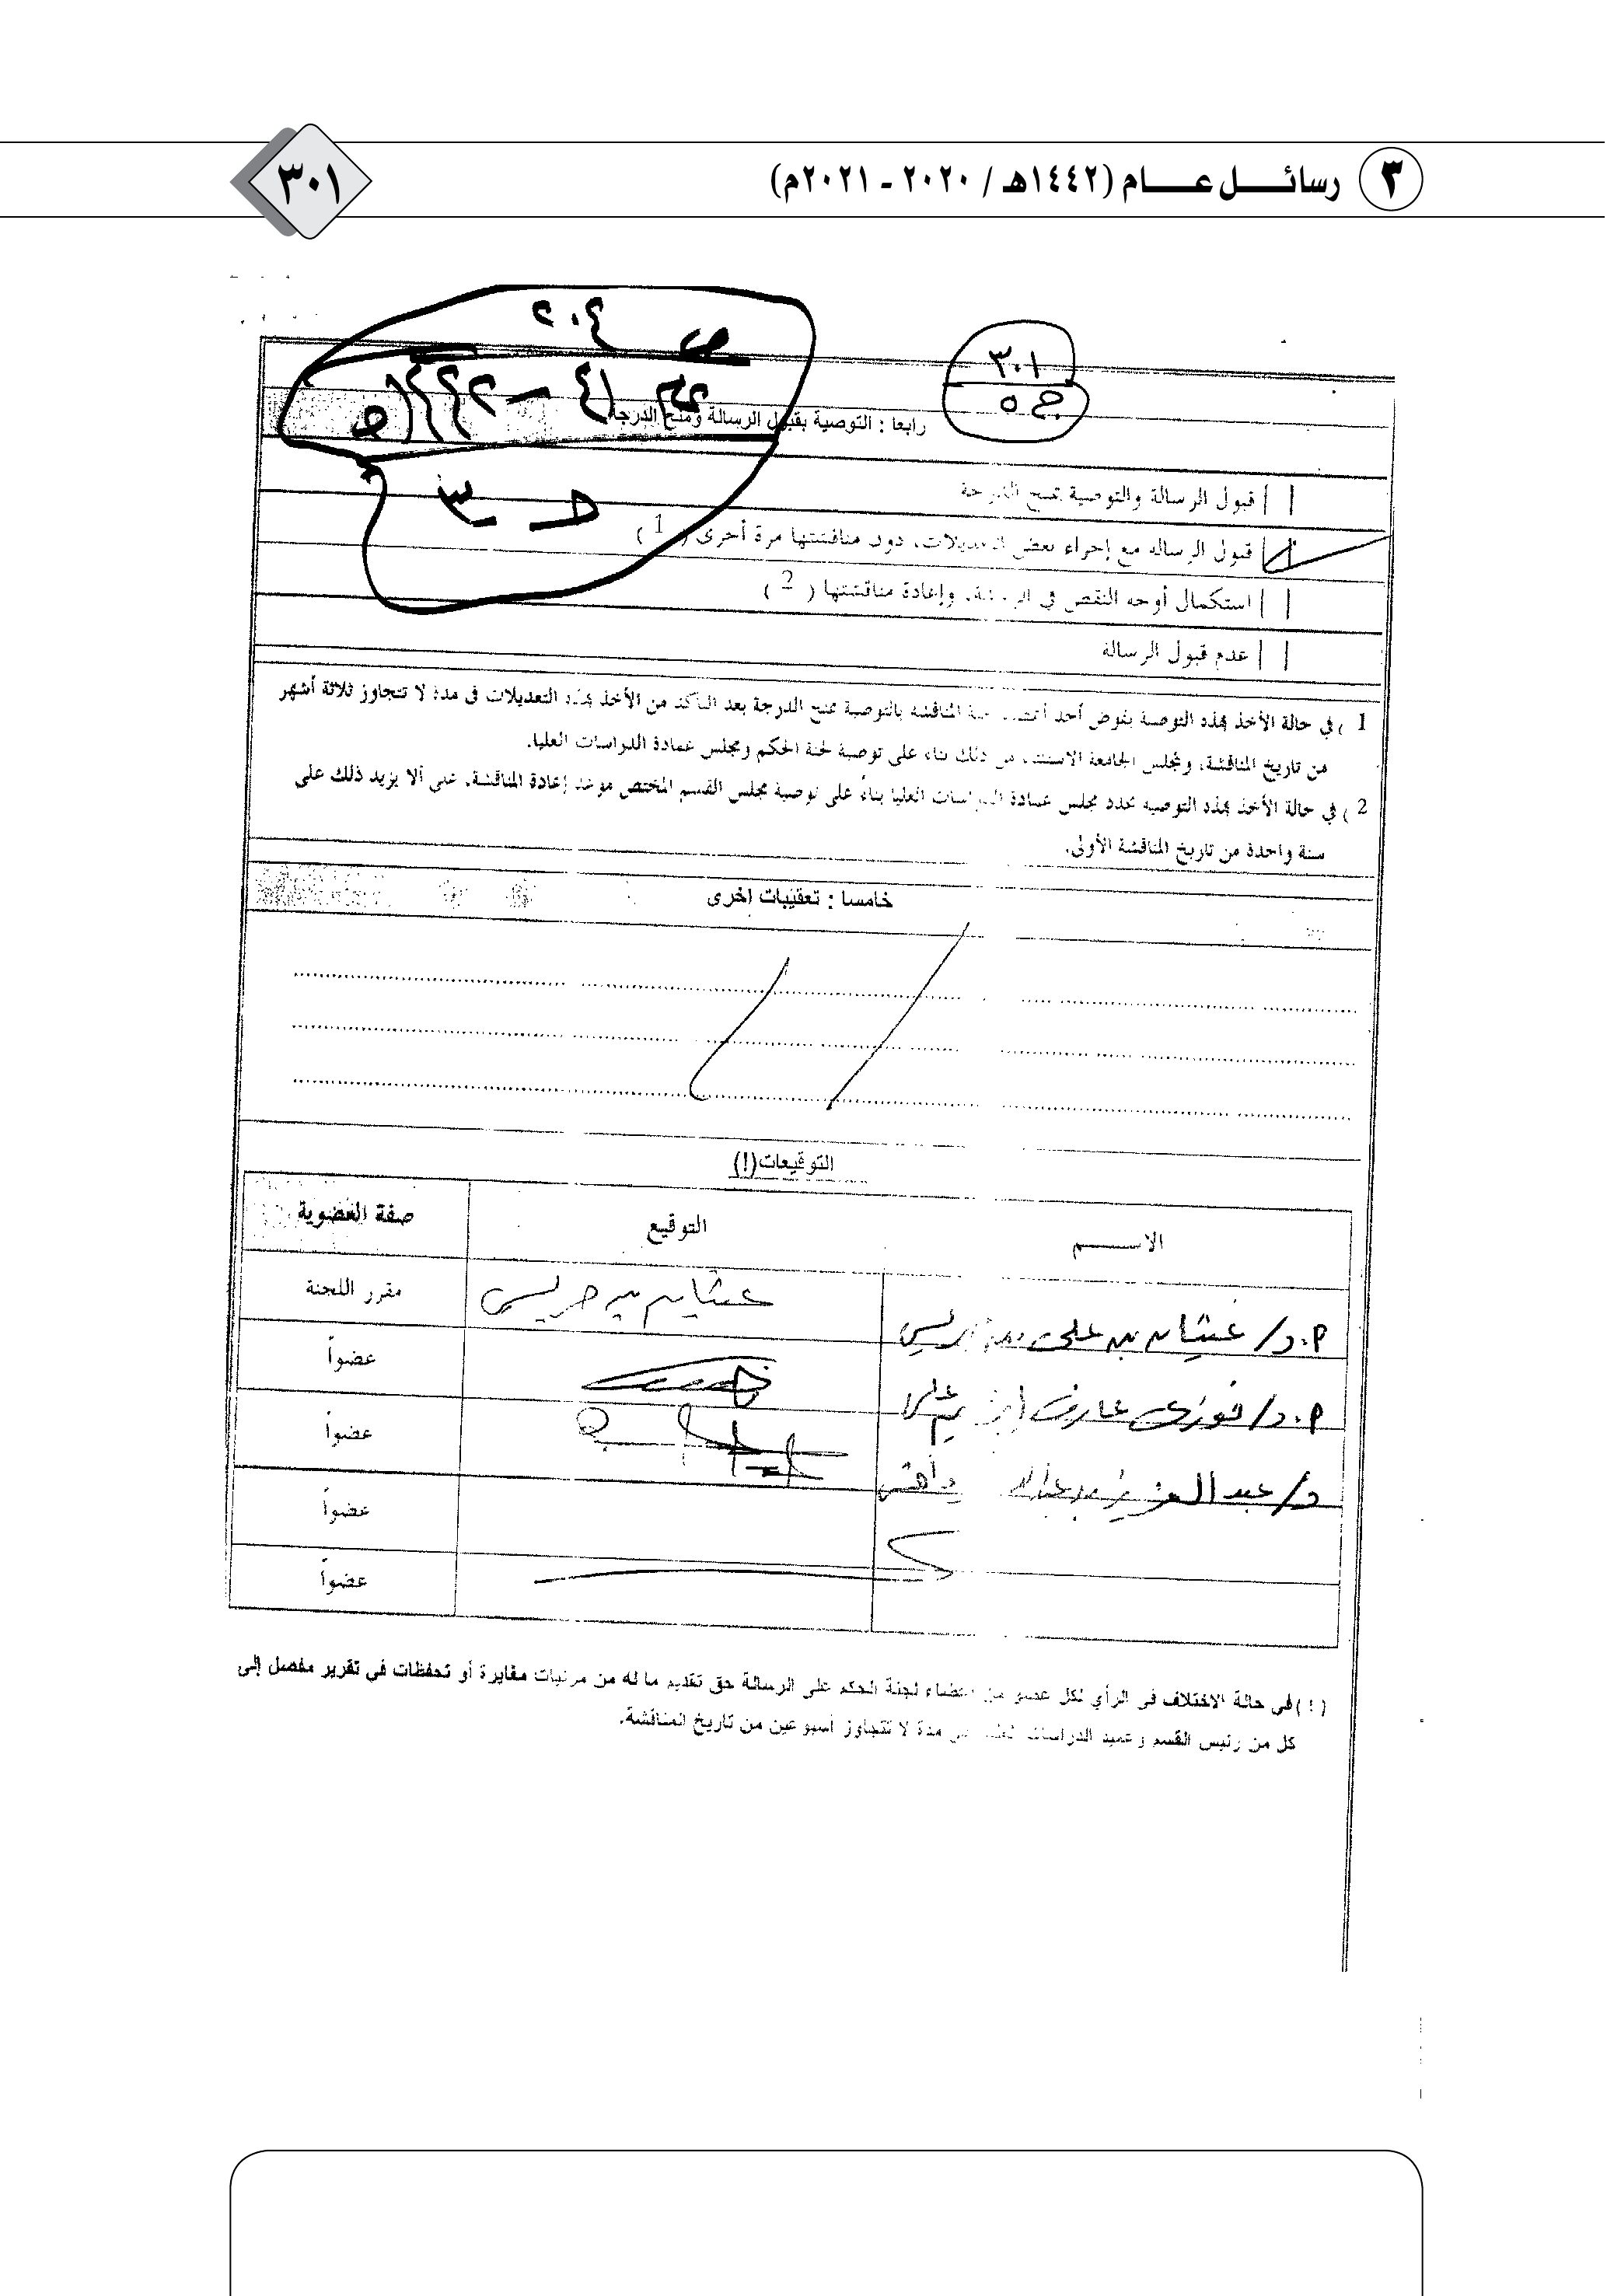 ٣ رسائل عام (١٤٤٢هـ / ٢٠٢٠ - ٢٠٢١م)
٣٠١
ص ٢٠٤
٣٠١
ج ٥
رابعا : التوصية بقبول الرسالة ومنح الدرجة
| | قبول الرسالة والتوصية بمنح الدرجة
| | قبول الرساله مع إجراء بعض التعديلات، دون مناقشتها مرة أخرى ( 1 )
| | استكمال أوجه النقص في الرسالة، وإعادة مناقشتها ( 2 )
| | عدم قبول الرسالة
1 ) في حالة الأخذ بهذه التوصية يفوض أحد أعضاء لجنة المناقشه بالتوصية بمنح الدرجة بعد التأكد من الأخذ بهذه التعديلات في مدة لا تتجاوز ثلاثة أشهر
من تاريخ المناقشة، ولمجلس الجامعة الاستثناء من ذلك بناء على توصية لجنة الحكم ومجلس عمادة الدراسات العليا.
2 ) في حالة الأخذ بهذه التوصيه يحدد مجلس عمادة الدراسات العليا بناءً على توصية مجلس القسم المختص موعد إعادة المناقشة، على ألا يزيد ذلك على
سنة واحدة من تاريخ المناقشة الأولى.
خامسا : تعقيبات اخرى
التوقيعات(!)
الاسم التوقيع صفة العضوية
أ.د/ غيثان بن علي بن جريس غيثان بن جريس مقرر اللجنة
أ.د/ فوزي عارف علي عضواً
د/ عبد العزيز بن عبدالله عضواً
عضواً
عضواً
( ! ) في حالة الاختلاف في الرأي لكل عضو من أعضاء لجنة الحكم على الرسالة حق تقديم ما له من مرئيات مغايرة أو تحفظات في تقرير مفصل إلى
كل من رئيس القسم وعميد الدراسات العليا في مدة لا تتجاوز أسبوعين من تاريخ المناقشة.